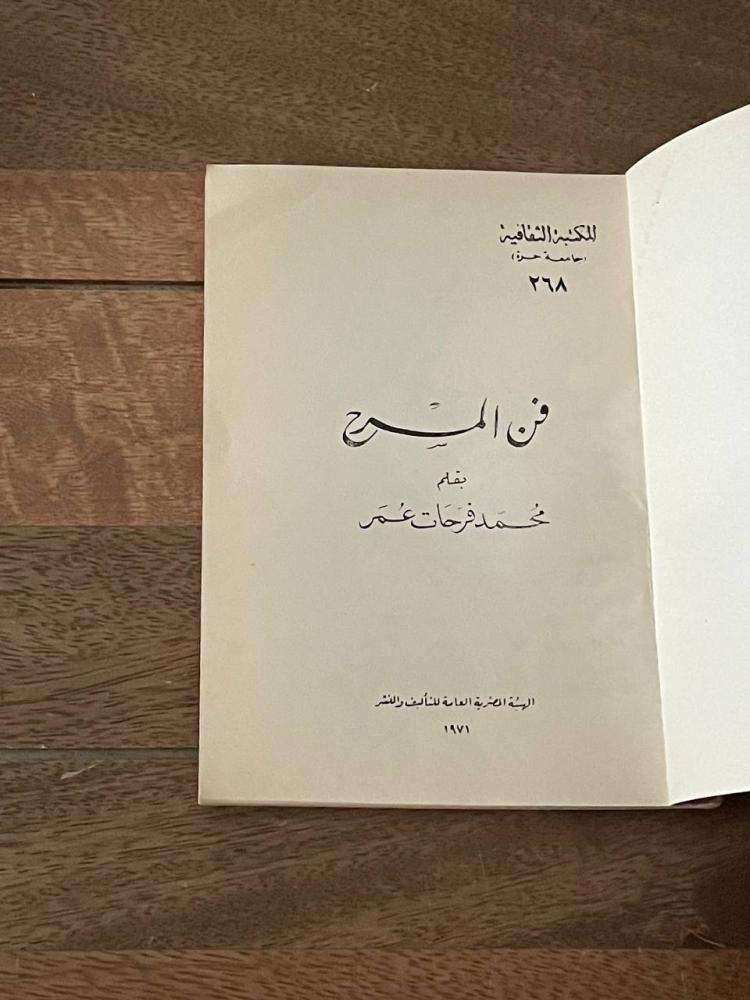 المكتبة الثقافية
(جامعة حرة)
٢٦٨
فن المسرح
بقلم
محمد فرحات عمر
الهيئة المصرية العامة للتأليف والنشر
١٩٧١